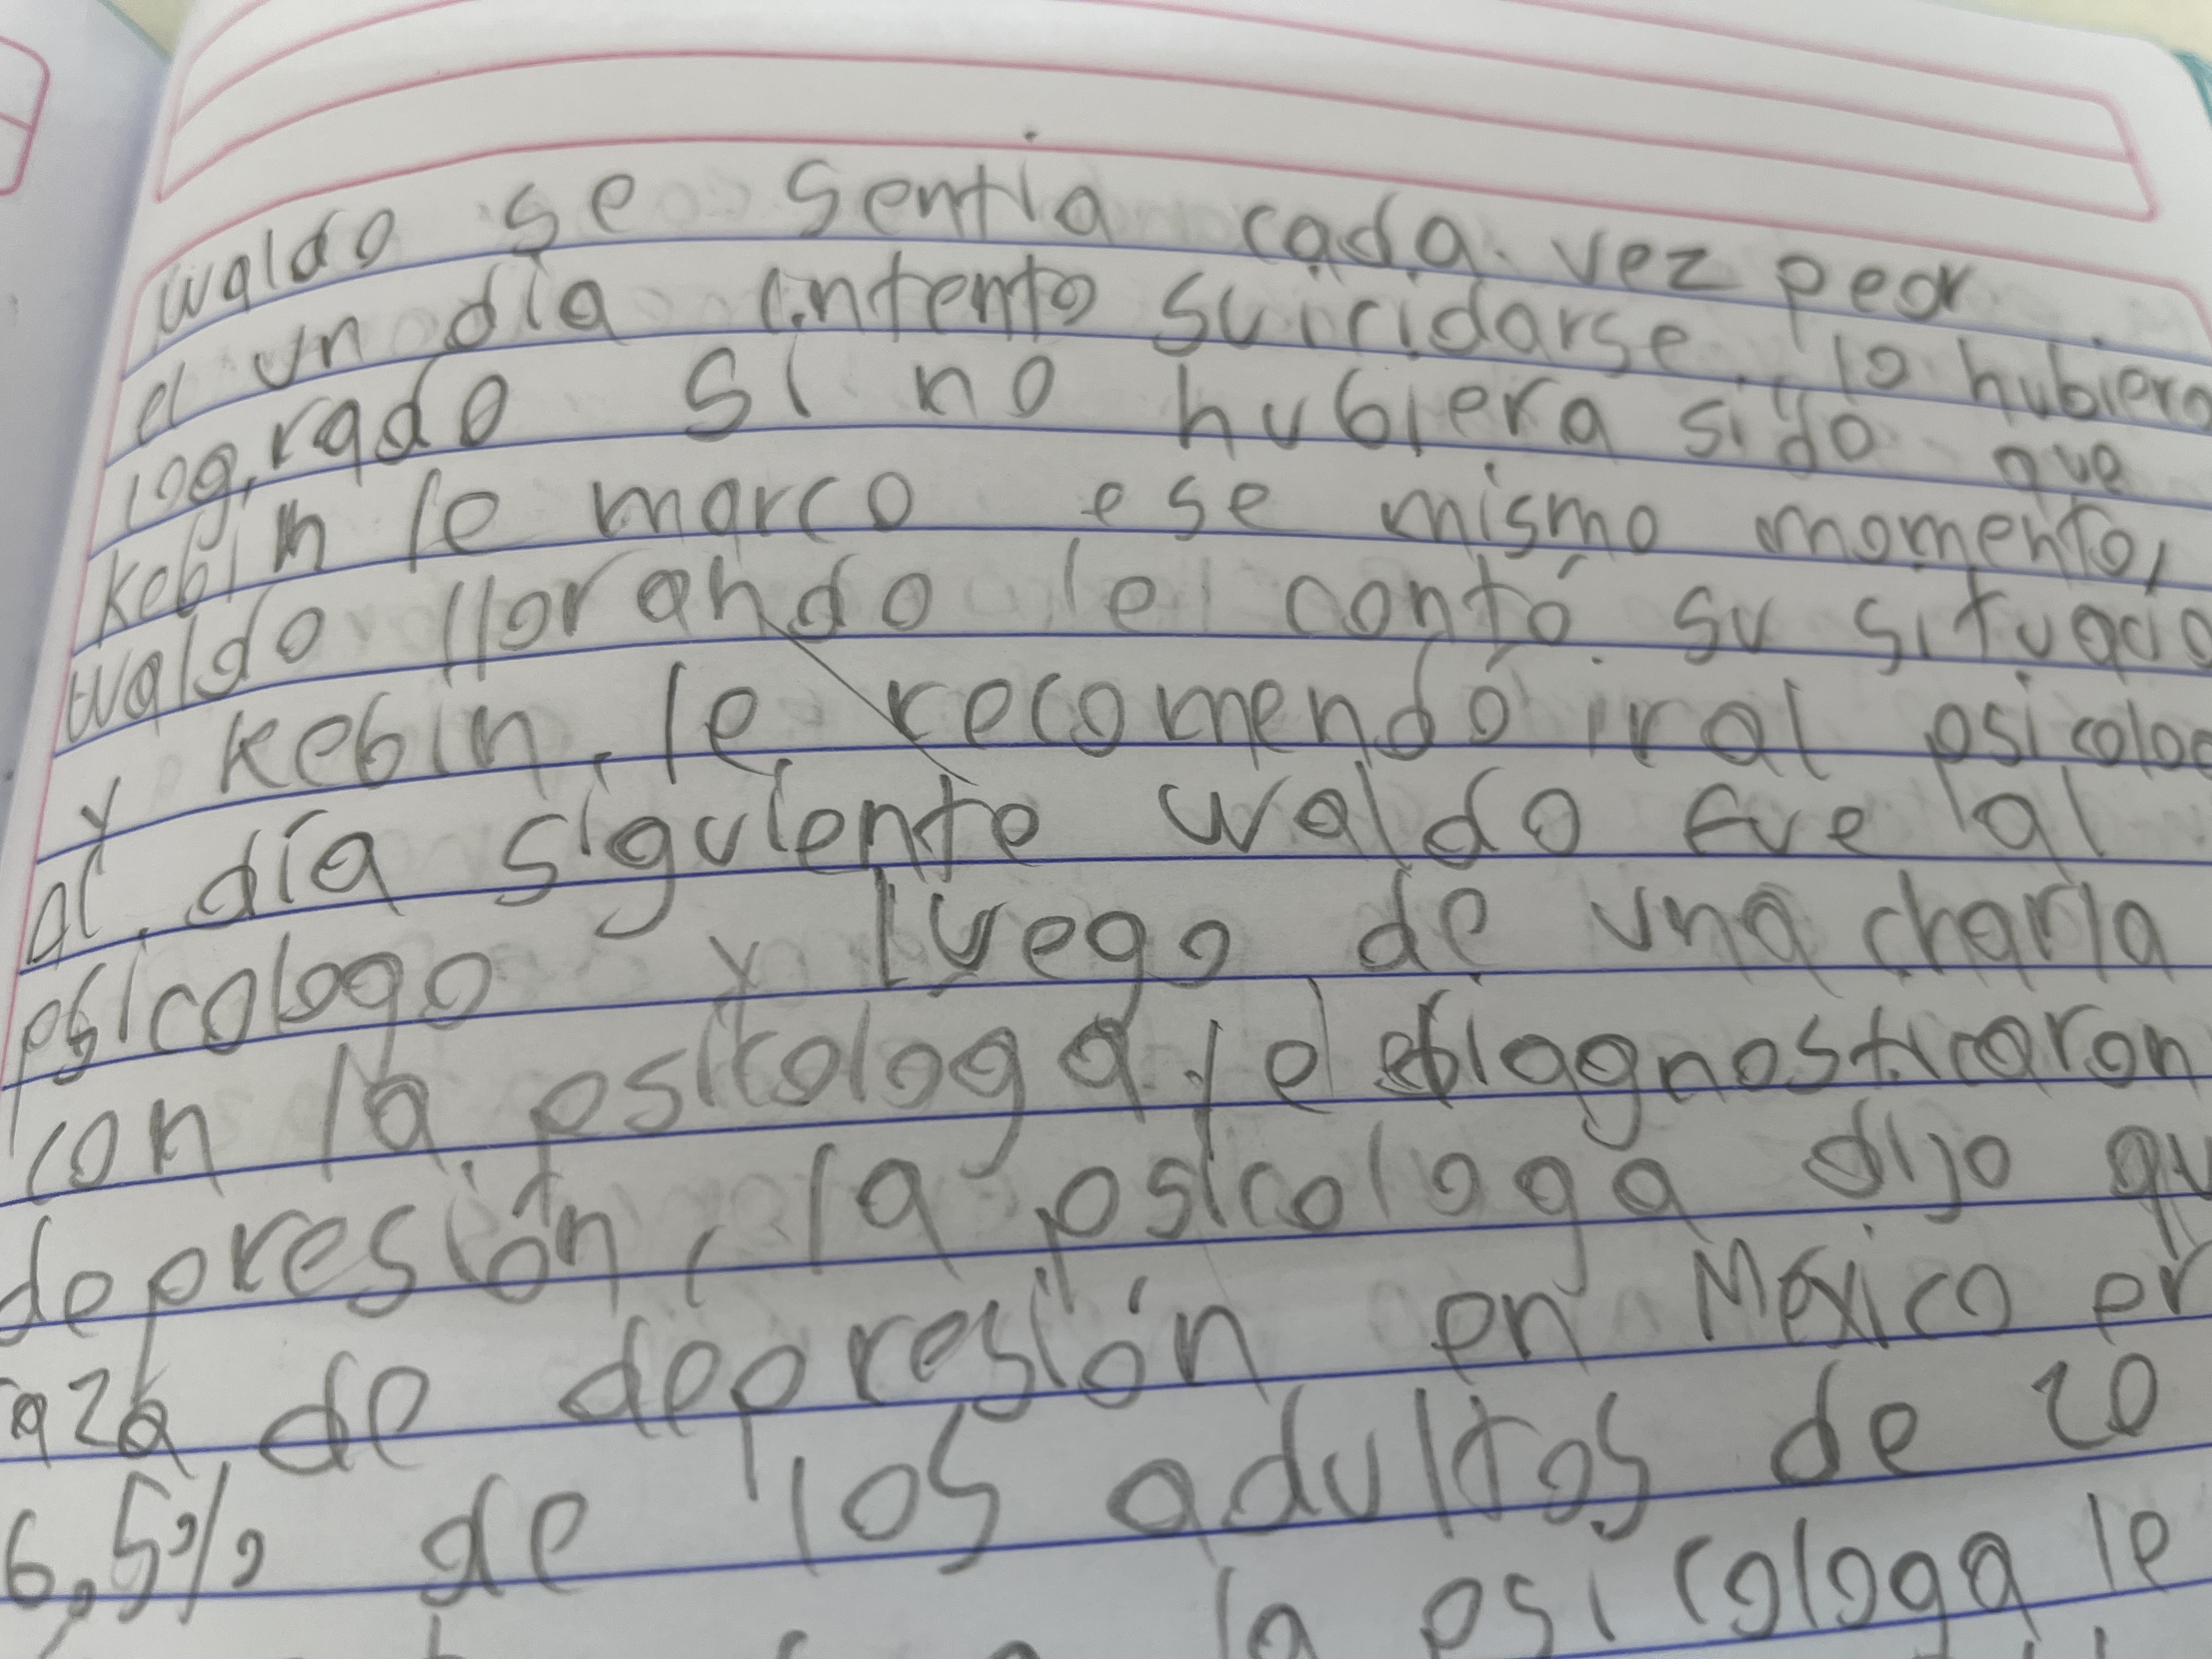 waldo se sentía cada vez peor
el un día intento suicidarse, lo hubiera
logrado si no hubiera sido que
kebin le marco ese mismo momento,
waldo llorando le contó su situació
y kebin le recomendó ir al psicolo
al día siguiente waldo fue al
psicologo y luego de una charla
con la psicologa le diagnosticaron
depresión, la psicologa dijo qu
aza de depresión en México er
6,5% de los adultos de 20
la psicologa le